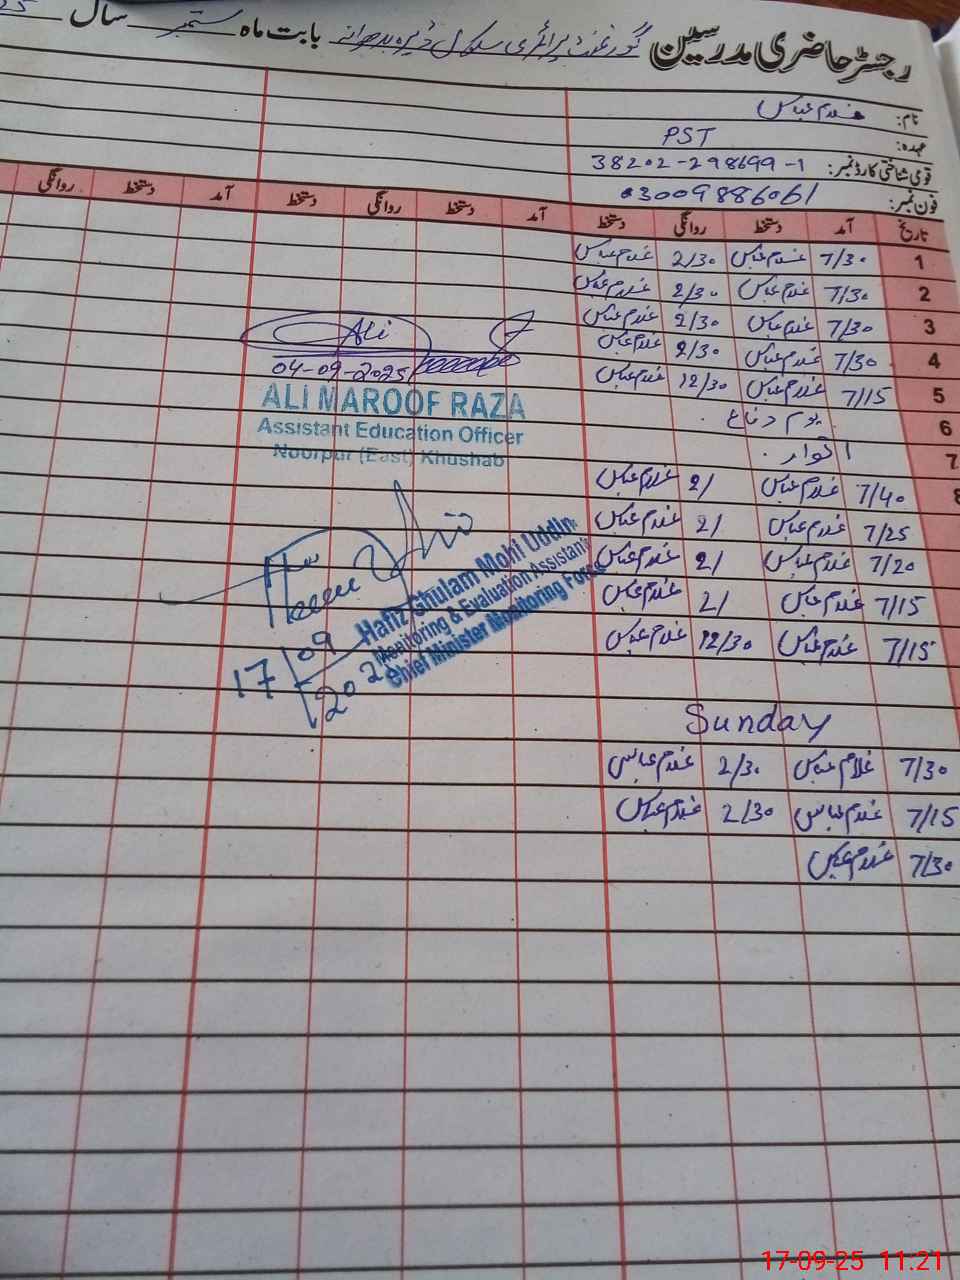 رجسٹر حاضری مدرسین گورنمنٹ پرائمری سکول ڈیرہ بدھوانہ بابت ماہ ستمبر سال 25
نام: غلام عباس
عہدہ: PST
قومی شناختی کارڈ نمبر: 38202-298699-1
فون نمبر: 03009886061
تاریخ آمد دستخط روانگی دستخط آمد دستخط روانگی دستخط آمد دستخط روانگی
1 7/30 غلام عباس 2/30 غلام عباس
2 7/30 غلام عباس 2/30 غلام عباس
3 7/30 غلام عباس 2/30 غلام عباس
4 7/30 غلام عباس 2/30 غلام عباس
5 7/15 غلام عباس 12/30 غلام عباس
6 یوم دفاع
7 اتوار
8 7/40 غلام عباس 2/ غلام عباس
7/25 غلام عباس 2/ غلام عباس
7/20 غلام عباس 2/ غلام عباس
7/15 غلام عباس 2/ غلام عباس
7/15 غلام عباس 12/30 غلام عباس
Sunday
7/30 غلام عباس 2/30 غلام عباس
7/15 غلام عباس 2/30 غلام عباس
7/30 غلام عباس
Ali
04-09-2025
ALI MAROOF RAZA
Assistant Education Officer
Noorpur (East) Khushab
Hafiz Ghulam Mohi Uddin
Monitoring & Evaluation Assistant
Chief Minister Monitoring Force
17/09/202
17-09-25 11:21